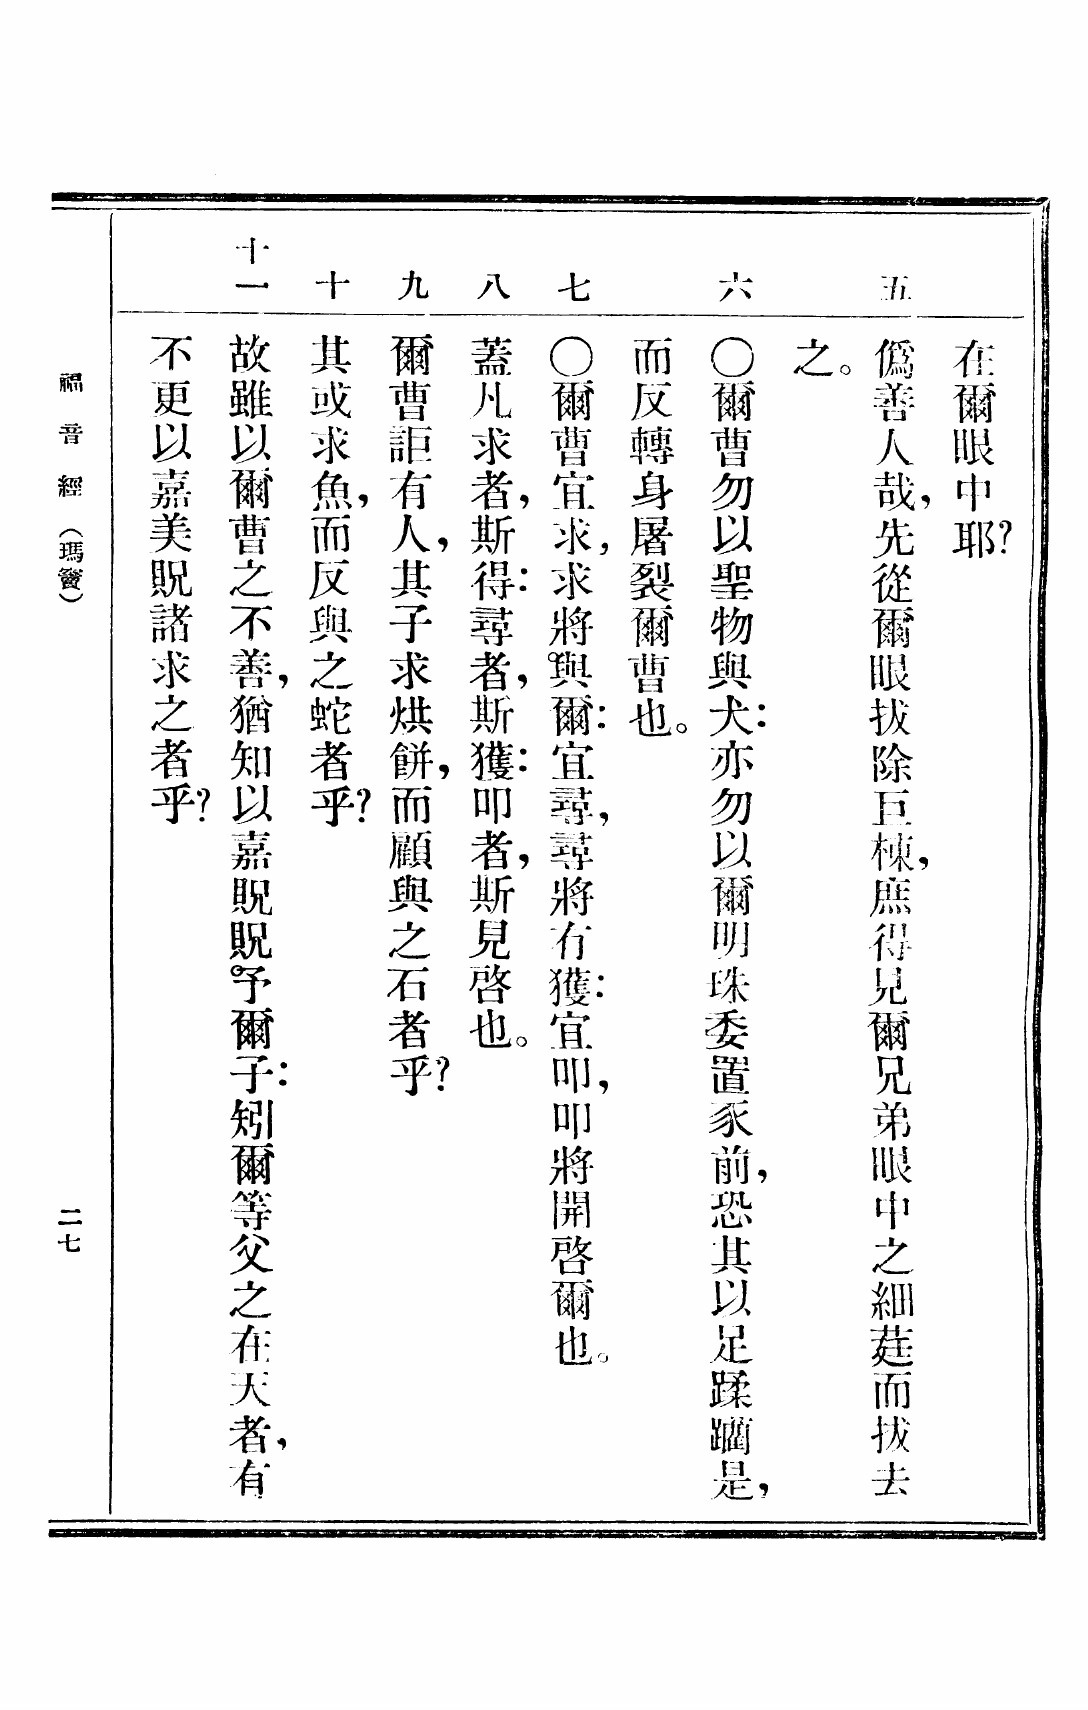 在爾眼中耶?
五
僞善人哉,先從爾眼拔除巨棟,庶得見爾兄弟眼中之細莛而拔去
之。
六
〇爾曹勿以聖物與犬:亦勿以爾明珠委置豕前,恐其以足蹂躪是,
而反轉身屠裂爾曹也。
七
〇爾曹宜求,求將與爾:宜尋,尋將有獲:宜叩,叩將開啓爾也。
八
蓋凡求者,斯得:尋者,斯獲:叩者,斯見啓也。
九
爾曹詎有人,其子求烘餅,而顧與之石者乎?
十
其或求魚,而反與之蛇者乎?
十一
故雖以爾曹之不善,猶知以嘉貺貺予爾子:矧爾等父之在天者,有
不更以嘉美貺諸求之者乎?
福音經(瑪竇)
二七